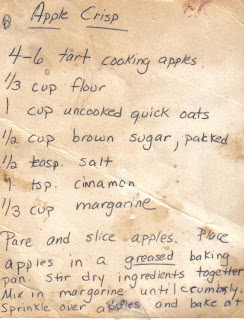 Apple Crisp
4-6 tart cooking apples.
1/3 cup flour
1 cup uncooked quick oats
1/2 cup brown sugar, packed
1/2 teasp. salt
1 tsp. cinamon
1/3 cup margarine
Pare and slice apples. Place
apples in a greased baking
pan. Stir dry ingredients together
Mix in margarine until crumbly.
Sprinkle over apples and bake at